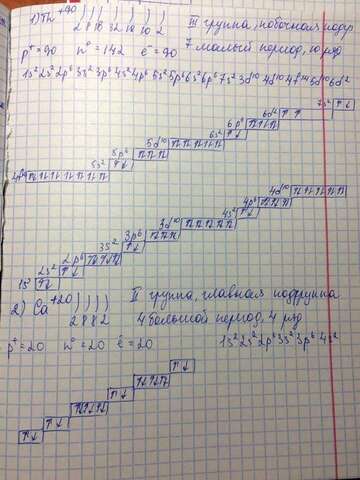 1) Th +90 ) ) ) ) ) ) ) III группа, побочная подгр
2 8 18 32 18 10 2
7 малый период, 10 ряд
p⁺ = 90 n⁰ = 142 e⁻ = 90
1s² 2s² 2p⁶ 3s² 3p⁶ 4s² 4p⁶ 5s² 5p⁶ 6s² 6p⁶ 7s² 3d¹⁰ 4d¹⁰ 4f¹⁴ 5d¹⁰ 6d²
7s² ↑↓
6d² ↑ ↑
6p⁶ ↑↓ ↑↓ ↑↓
6s² ↑↓
5d¹⁰ ↑↓ ↑↓ ↑↓ ↑↓ ↑↓
5p⁶ ↑↓ ↑↓ ↑↓
5s² ↑↓
↑↓ ↑↓ ↑↓ ↑↓ ↑↓ ↑↓ ↑↓
4d¹⁰ ↑↓ ↑↓ ↑↓ ↑↓ ↑↓
4p⁶ ↑↓ ↑↓ ↑↓
4s² ↑↓
3d¹⁰ ↑↓ ↑↓ ↑↓ ↑↓ ↑↓
3p⁶ ↑↓ ↑↓ ↑↓
3s² ↑↓
2p⁶ ↑↓ ↑↓ ↑↓
2s² ↑↓
1s² ↑↓
2) Ca +20 ) ) ) ) II группа, главная подгруппа
2 8 8 2 4 большой период, 4 ряд
p⁺ = 20 n⁰ = 20 e⁻ = 20 1s² 2s² 2p⁶ 3s² 3p⁶ 4s²
↑↓
↑↓ ↑↓ ↑↓
↑↓
↑↓ ↑↓ ↑↓
↑↓
↑↓